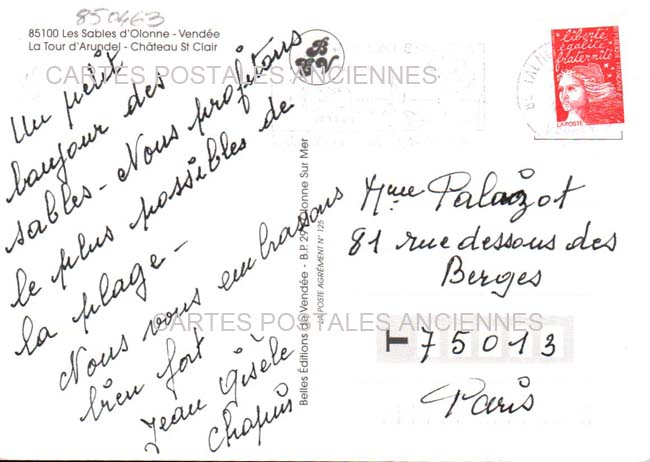 850463
85100 Les Sables d'Olonne - Vendée
La Tour d'Arundel - Château St Clair
CARTES POSTALES ANCIENNES
Un petit
bonjour des
sables - Nous profitons
le plus possibles de
la plage -
Nous vous embrassons
bien fort
Jean Gisèle
Chapuis
B
B V
Belles Editions de Vendée - B.P. 29 - Olonne Sur Mer
LA POSTE AGRÉMENT N° 125
liberté
égalité
fraternité
LA POSTE
Mme Palaizot
81 rue dessous des
Berges
CARTES POSTALES ANCIENNES
T 75013
Paris